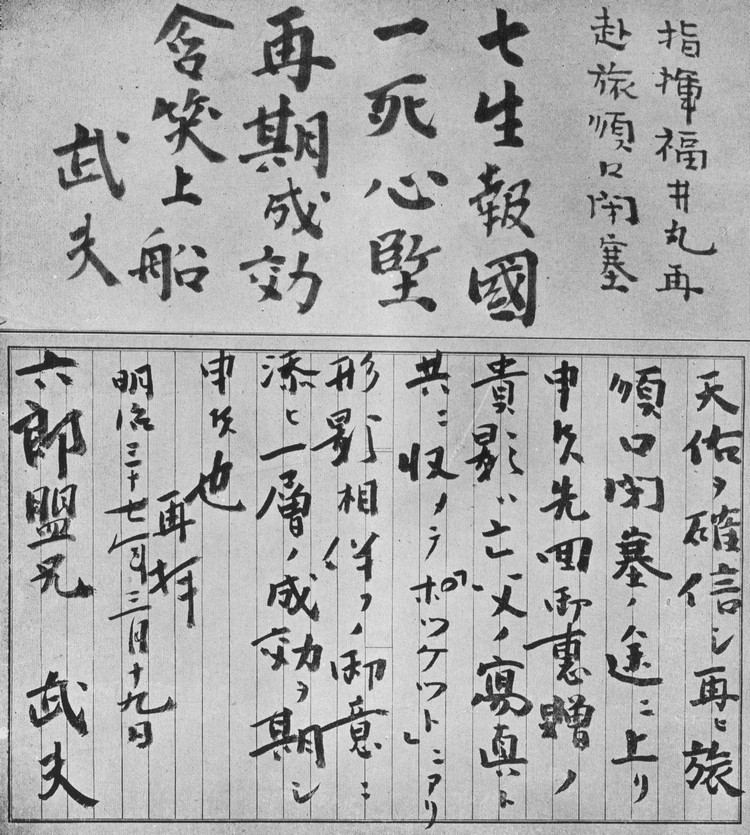 指揮福井丸再
赴旅順口閉塞
七生報國
一死心堅
再期成効
含笑上船
武夫
天佑ヲ確信シ再ヒ旅
順口閉塞ノ途ニ上リ
申候先回御惠贈ノ
貴影ハ亡父ノ寫眞ト
共ニ収メテ「ポツケツト」ニアリ
形影相伴フノ御意ニ
添ヒ一層ノ成効ヲ期シ
申候也
再拝
明治三十七年三月十九日
武夫
六郎盟兄